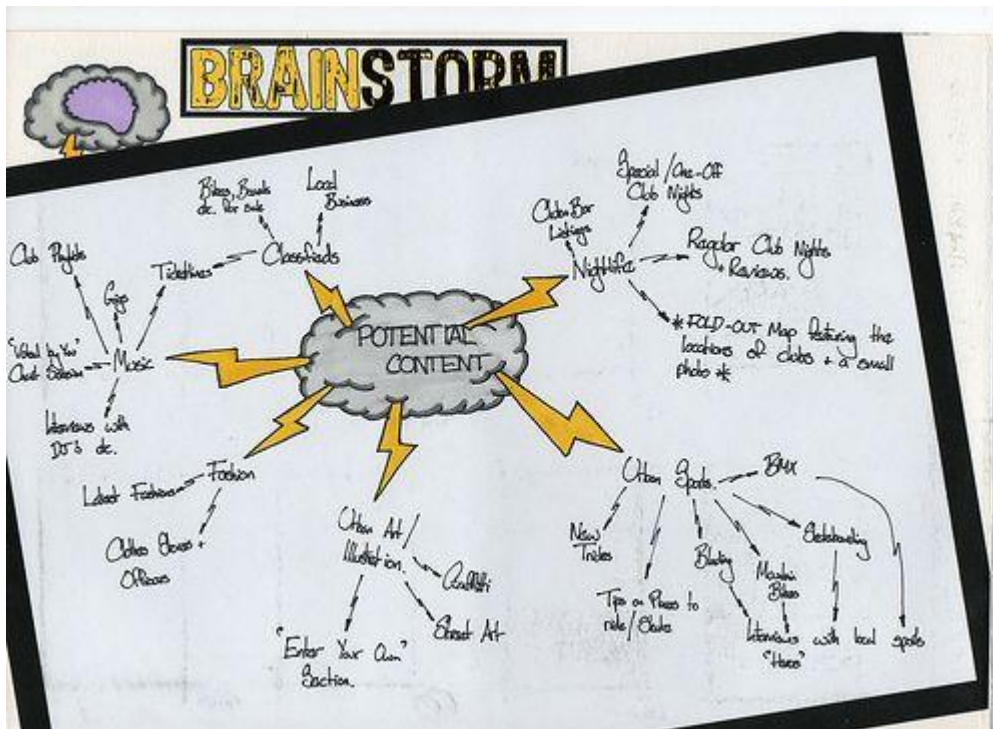 BRAINSTORM
POTENTIAL
CONTENT
Classifieds
Bikes, Boards
etc. for sale
Local
Business
Music
Club Playlists
Gigs
"Voted by You"
Chart
Interviews with
DJ's etc.
Fashion
Latest Fashions
Clothes Stores +
Urban Art /
Illustration
Graffiti
Street Art
"Enter Your Own"
Section.
Nightlife
Listings
Special / One-Off
Club Nights
Regular Club Nights
+ Reviews.
* FOLD-OUT Map featuring the
locations of clubs + a small
photo *
Urban Sports
New
Tricks
Tips on Places to
ride / Skate
Blading
Mountain
Bikes
Skateboarding
BMX
Interviews with local sports
"Heroes"